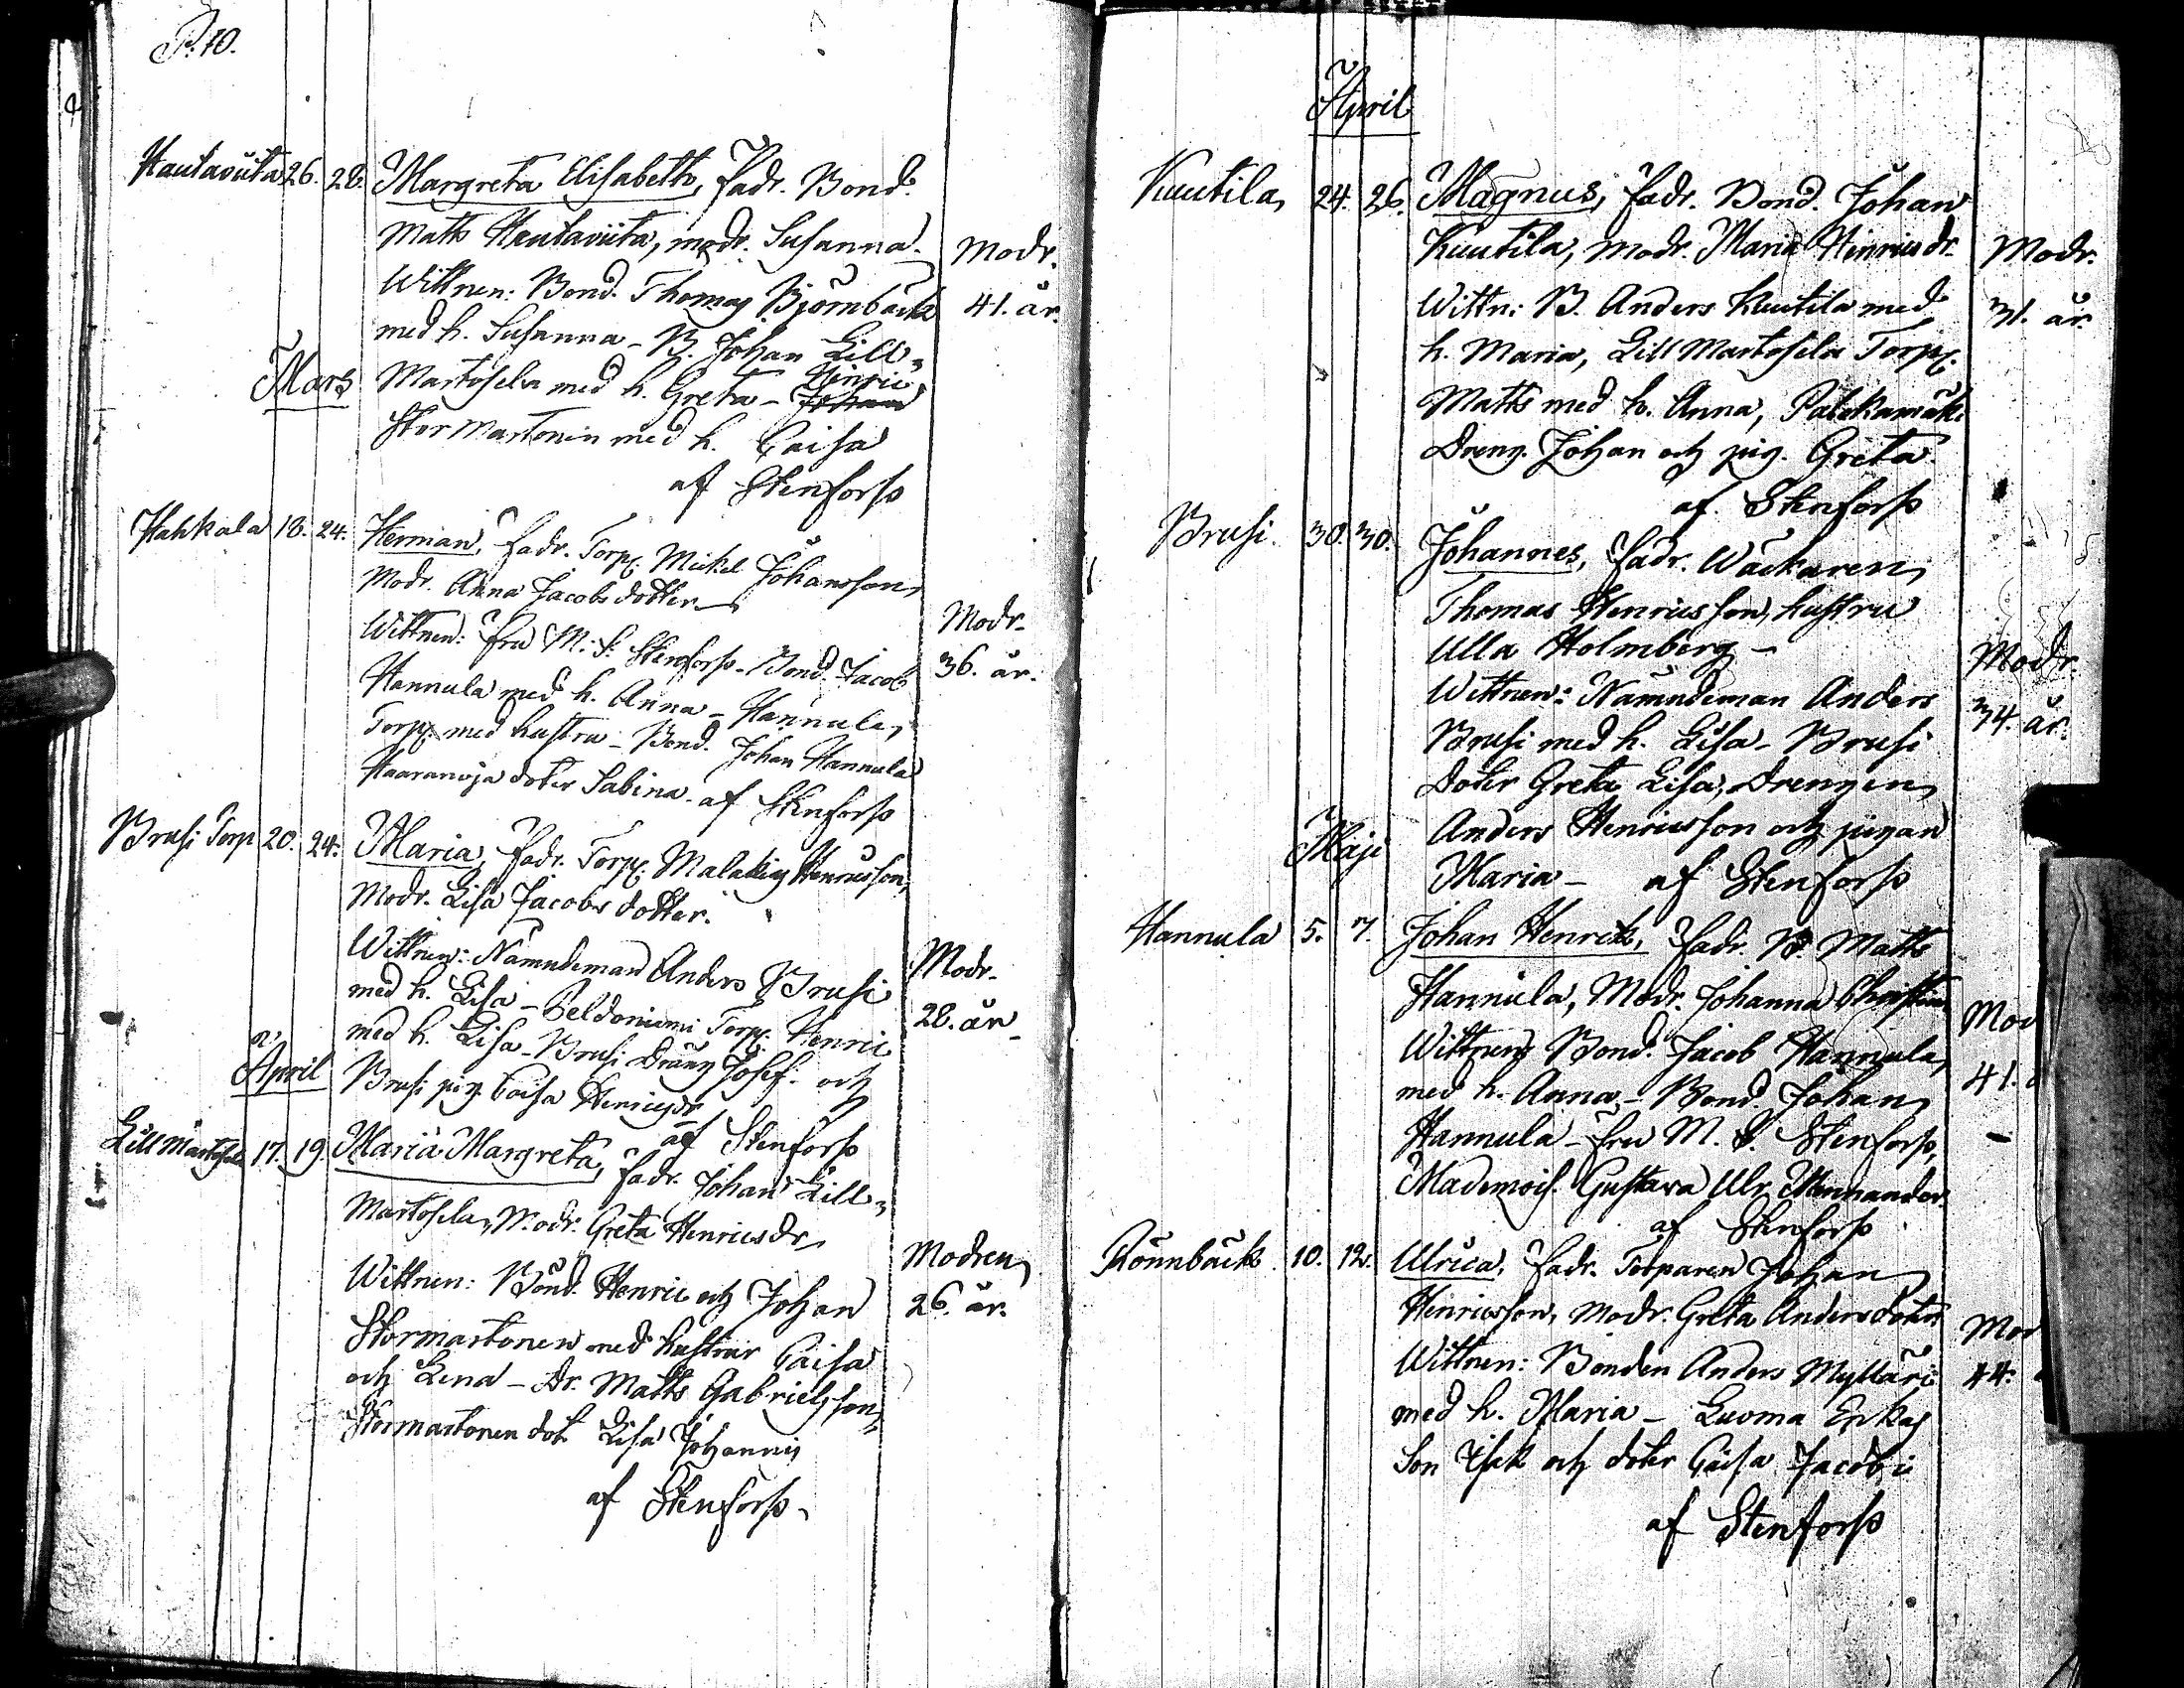 P. 10.
Hautaviita 26. 28. Margreta Elisabeth, Fadr. Bond.
Matts Hautaviita, modr. Susanna.
Modr.
Wittnen: Bond. Thomas Björnbacka
41. år.
med h. Susanna - B. Johan Lill-
Mars
Martosela med h. Greta - Henric
Stor Martonen med h. Caisa
af Stenforss
Hahkala 18. 24. Herman, Fadr. Torp. Mickel Johansson,
Modr. Anna Jacobsdotter
Modr.
Wittnen: Fru M. S. Stenforss - Bond. Jacob
36. år.
Hannula med h. Anna - Hannula
Torp. med hustru - Bond. Johan Hannula
Haaranoja doter Sabina. af Stenforss
Brusi Torp 20. 24. Maria, Fadr. Torp. Malakias Henricsson,
Modr. Lisa Jacobsdotter.
Wittnen: Nämndeman Anders Brusi
Modr.
med h. Lisa - Peldoniemi Torp. Henric
28. år
med h. Lisa - Brusi Dräng Josef och
April
Brusi pig. Caisa Henricsdr
af Stenforss
Lill Martosela 17. 19. Maria Margreta, Fadr. Johan Lill-
Martosela, Modr. Greta Henricsdr
Modren
Wittnen: Bond. Henric och Johan
26. år.
Stormartonen med hustrur Caisa
och Lena - Dr. Matts Gabrielsson,
Stormartonen dot. Lisa Johannis
af Stenforss.
April
Kuutila 24. 26. Magnus, Fadr. Bond. Johan
Kuutila, Modr. Maria Hinricsdr.
Modr.
Wittn: B. Anders Kuutila med
31. år
h. Maria, Lill Martosela Torp.
Matts med h. Anna,
Dreng. Johan och pig. Greta
af Stenforss
Brusi. 30. 30. Johannes, Fadr. Wäckaren
Thomas Henricsson, hustru
Ulla Holmberg -
Modr.
Wittnen: Nämndeman Anders
34. år.
Brusi med h. Lisa - Brusi
doter Greta Lisa, Drengen
Maji
Anders Henricsson och pigan
Maria - af Stenforss
Hannula 5. 7. Johan Henrik, Fadr. B. Matts
Hannula, Modr. Johanna Christina
Mod
Wittnen Bond. Jacob Hannula,
41.
med h. Anna - Bond Johan
Hannula - Fru M. S. Stenforss,
Mademois. Gustava Ulr. Mennander.
af Stenforss
Rönnbäck 10. 12. Ulrica, Fadr. Torparen Johan
Henricsson, Modr. Greta Andersdoter
Mod
Wittnen: Bonden Anders Mylläri
44.
med h. Maria - Luoma Erkas
Son Isak och doter Caisa Jacobi
af Stenforss